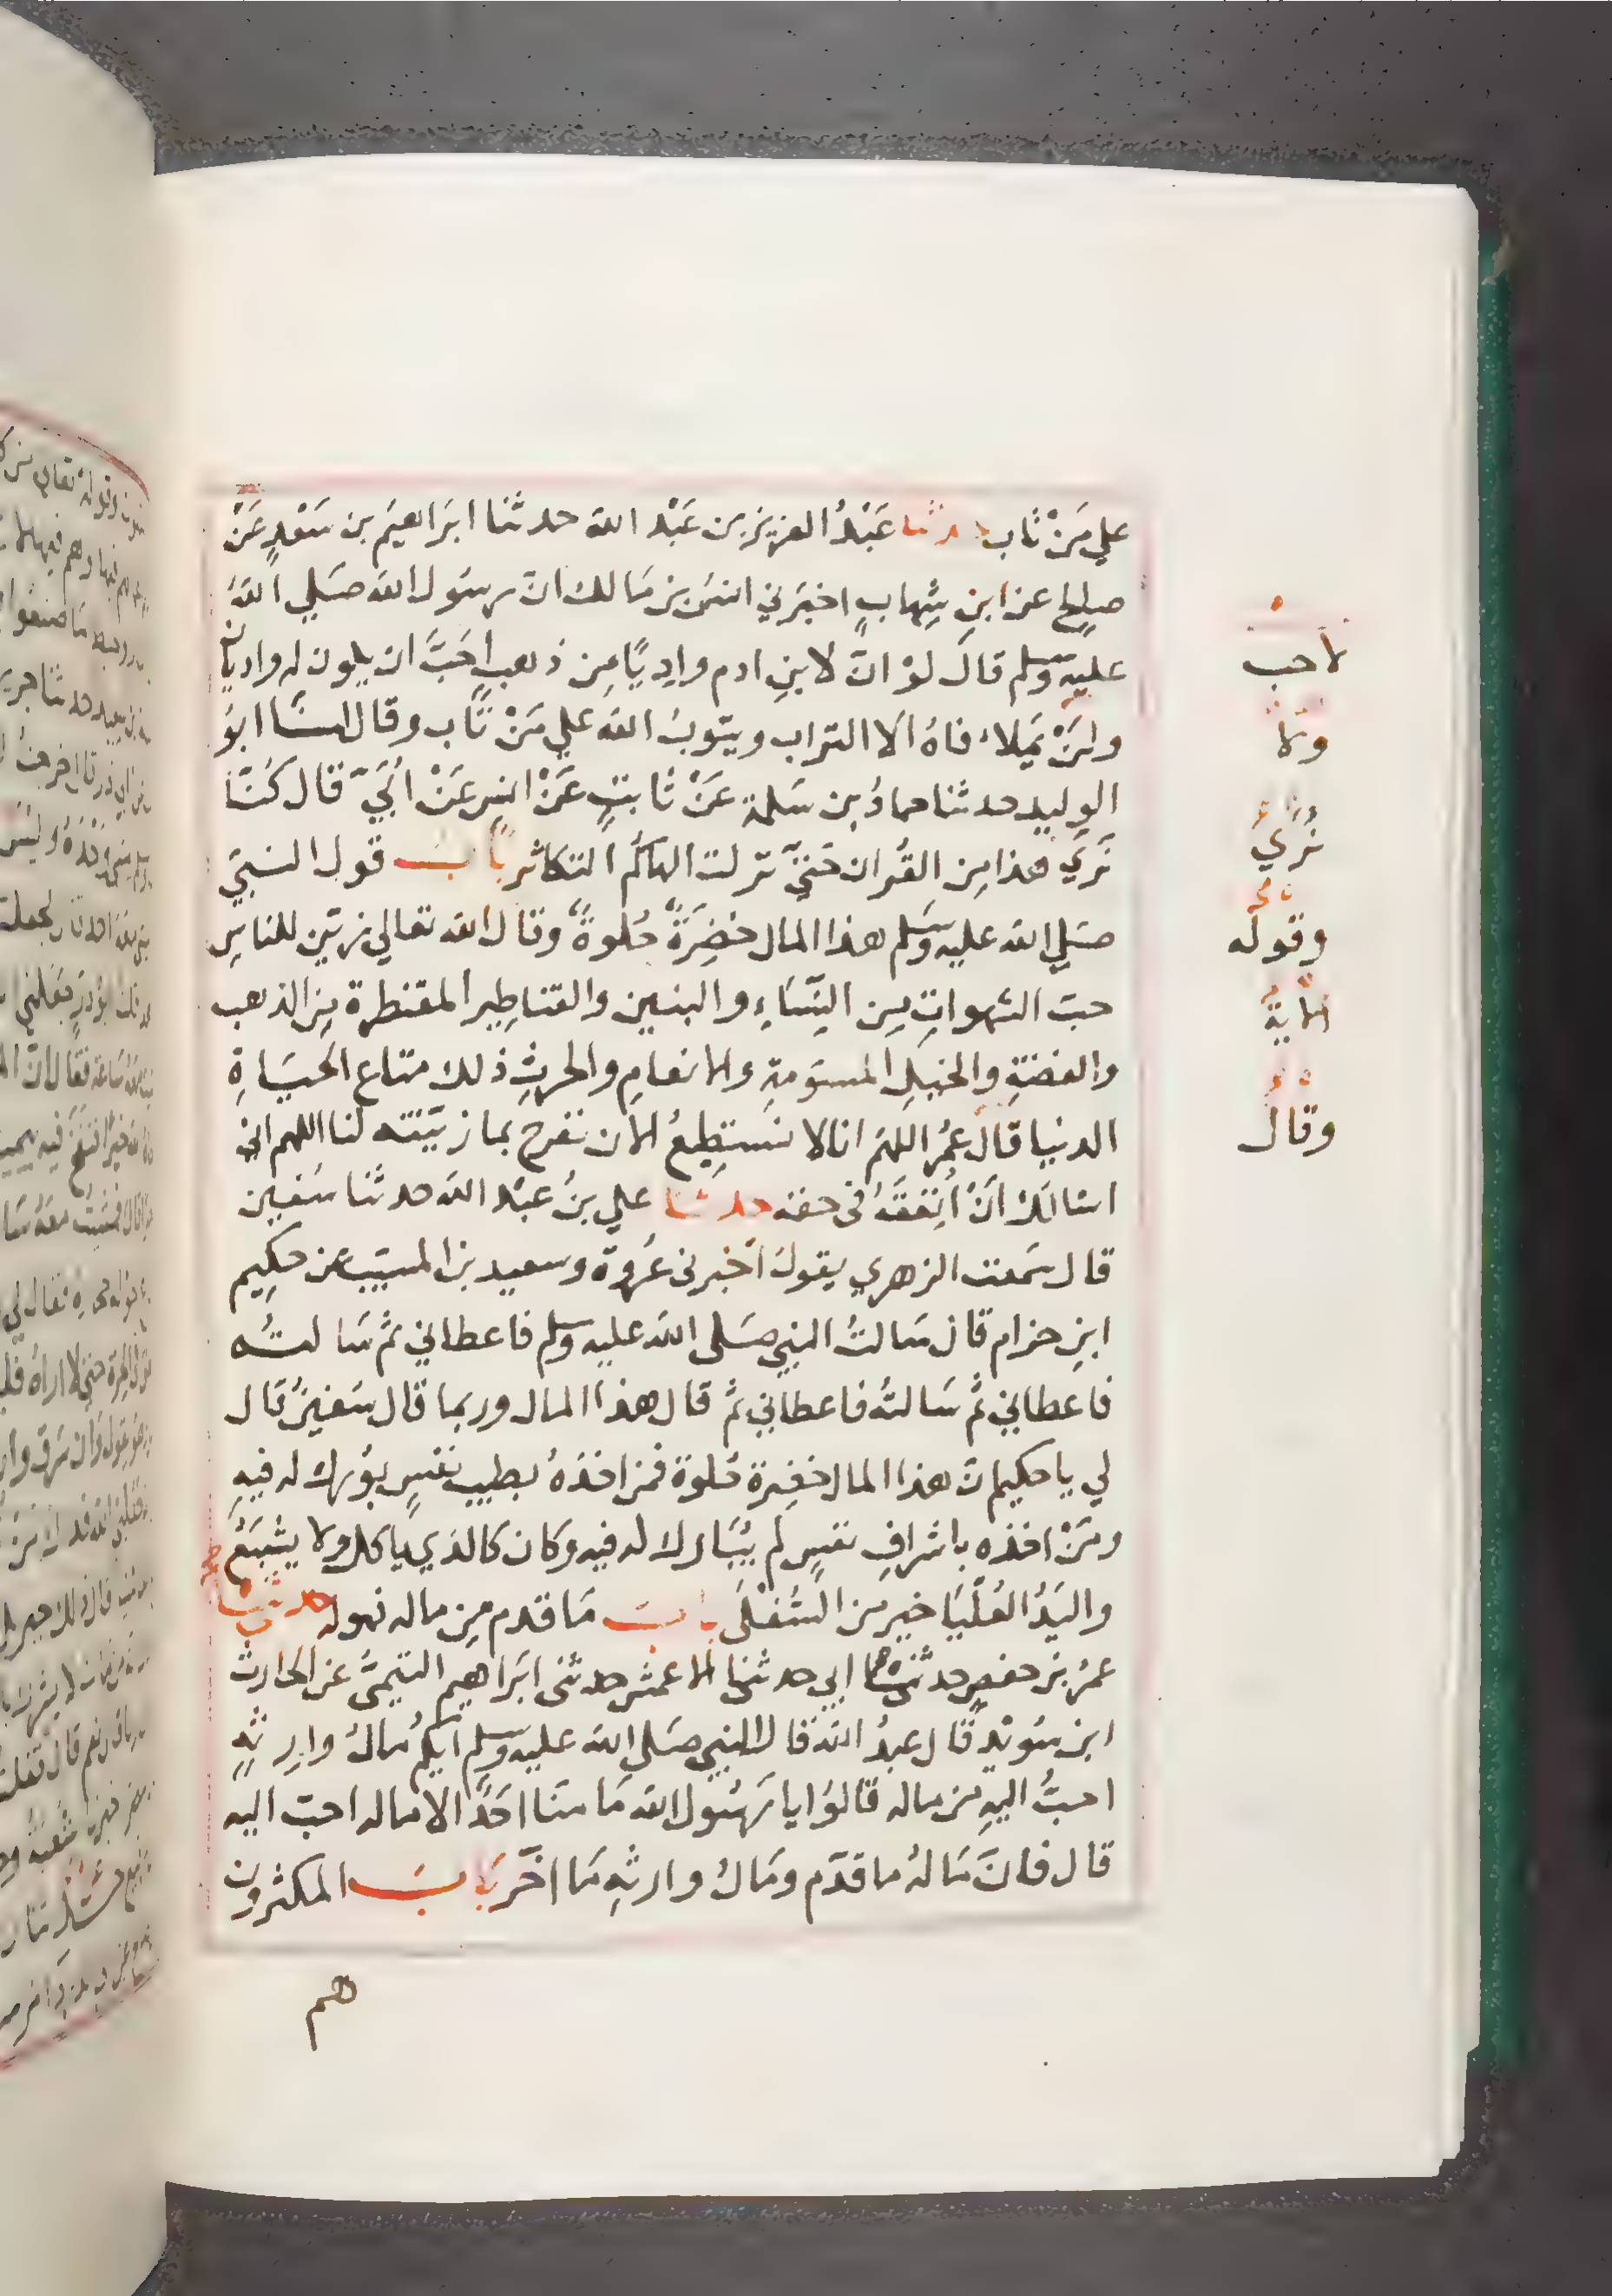 علي مَنْ تاب حدثنا عَبْدُ العزيز بن عَبْد الله حدثنا ابرَاهيم بن سَعْدٍ عَنْ
صلحٍ عن ابنِ شِهابٍ اخبَرَني انسُ بن مَالك انّ رسُول الله صَلي اللهُ
عليه وسلم قالَ لوْ انّ لابنِ ادم وادِيًا مِن ذهبٍ احَبَّ ان يكون له واديان
ولنْ يَملاء فاهُ الا التراب ويتوبُ الله علي مَنْ تَاب وقال لنَا ابوُ
الوليد حدثنا حمادُ بن سَلمة عَنْ ثابتٍ عَنْ انسٍ عَنْ اُبَيّ قال كُنّا
نَرَي هذا مِن القُران حَتيّ نزلت الهاكُم التكاثر بَاب قول النبيّ
صَلي الله عليه وسَلم هذا المال خضِرَةٌ حُلوةٌ وقال الله تعالي زيّن للناسِ
حبّ الشهواتِ مِن النِّسَاءِ والبنين والقناطِير المقنطرة مِن الذهب
والفضّةِ والخيلِ المسَوّمةِ والانعامِ والحرثِ ذلك متاع الحيَاةِ
الدنيا قالَ عمرُ اللهمّ انا لا نستَطِيعُ الا ان نفرح بما زيّنته لنا اللهم اني
اسالك اَنْ اُنفقَهُ في حقه حدثنا علي بنُ عَبْد الله حدثنا سُفين
قال سَمعت الزهري يقولُ اخبرني عُروة وسعيد بن المسيّب عن حكِيم
ابنِ حزام قال سَالتُ النبي صَلى الله عليه وسلم فاعطاني ثمّ سَالتُه
فاعطاني ثمّ سَالتهُ فاعطاني ثمّ قال هذا المال وربما قال سُفينُ قال
لي يا حكيم انّ هذا المال خضِرة حُلوة فمن اخذهُ بطيب نفسٍ بوُرك له فيهِ
ومَنْ اخذه باشرافِ نفسٍ لم يُبَارك له فيه وكان كالذي ياكل ولا يشبَعُ
واليَدُ العُلْيَا خير من السُفْلَى باب مَا قدم مِن ماله فهو له حدثنا
عمرُ بن حفصٍ حدثني ابي حدثنا الاعمش حدثنى ابَراهيم التيميّ عن الحارث
ابن سُوَيْدٍ قال عبدُ الله قال النبي صَلي الله عليه وسلم ايكم مَالُ وارِثهِ
احبُّ اليهِ من ماله قالوُا يا رسُول الله مَا منّا احَدٌ الا ماله احبّ اليه
قال فانّ مَالهُ ما قدّم ومَالُ وارثهِ مَا اخّر بَاب المكثرون
هم
لاحب
ولا
نُرَيُ
وقوله
الاية
وقال